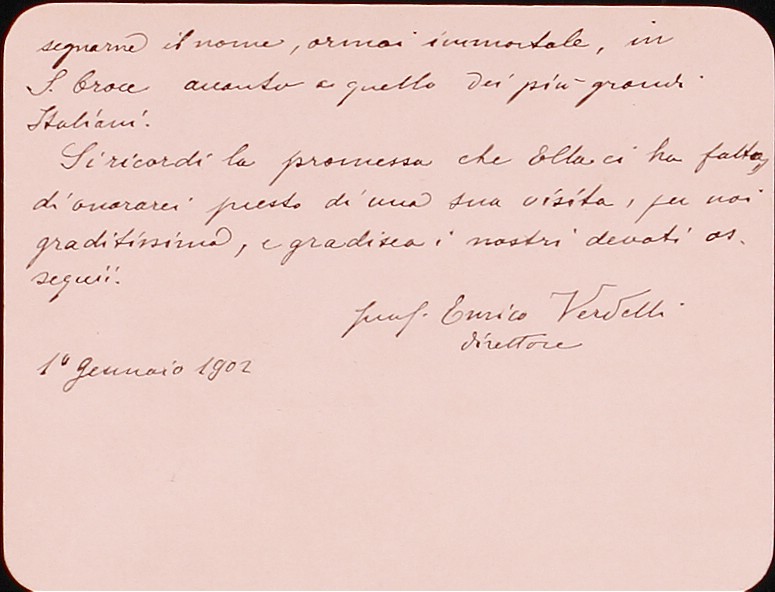 segnarne il nome, ormai immortale, in
S. Croce accanto a quello dei più grandi
Italiani.
Si ricordi la promessa che Ella ci ha fatta,
di onorarci presto di una sua visita, per noi
graditissima, e gradisca i nostri devoti os-
sequii.
prof. Enrico Verdelli
direttore
1º Gennaio 1902